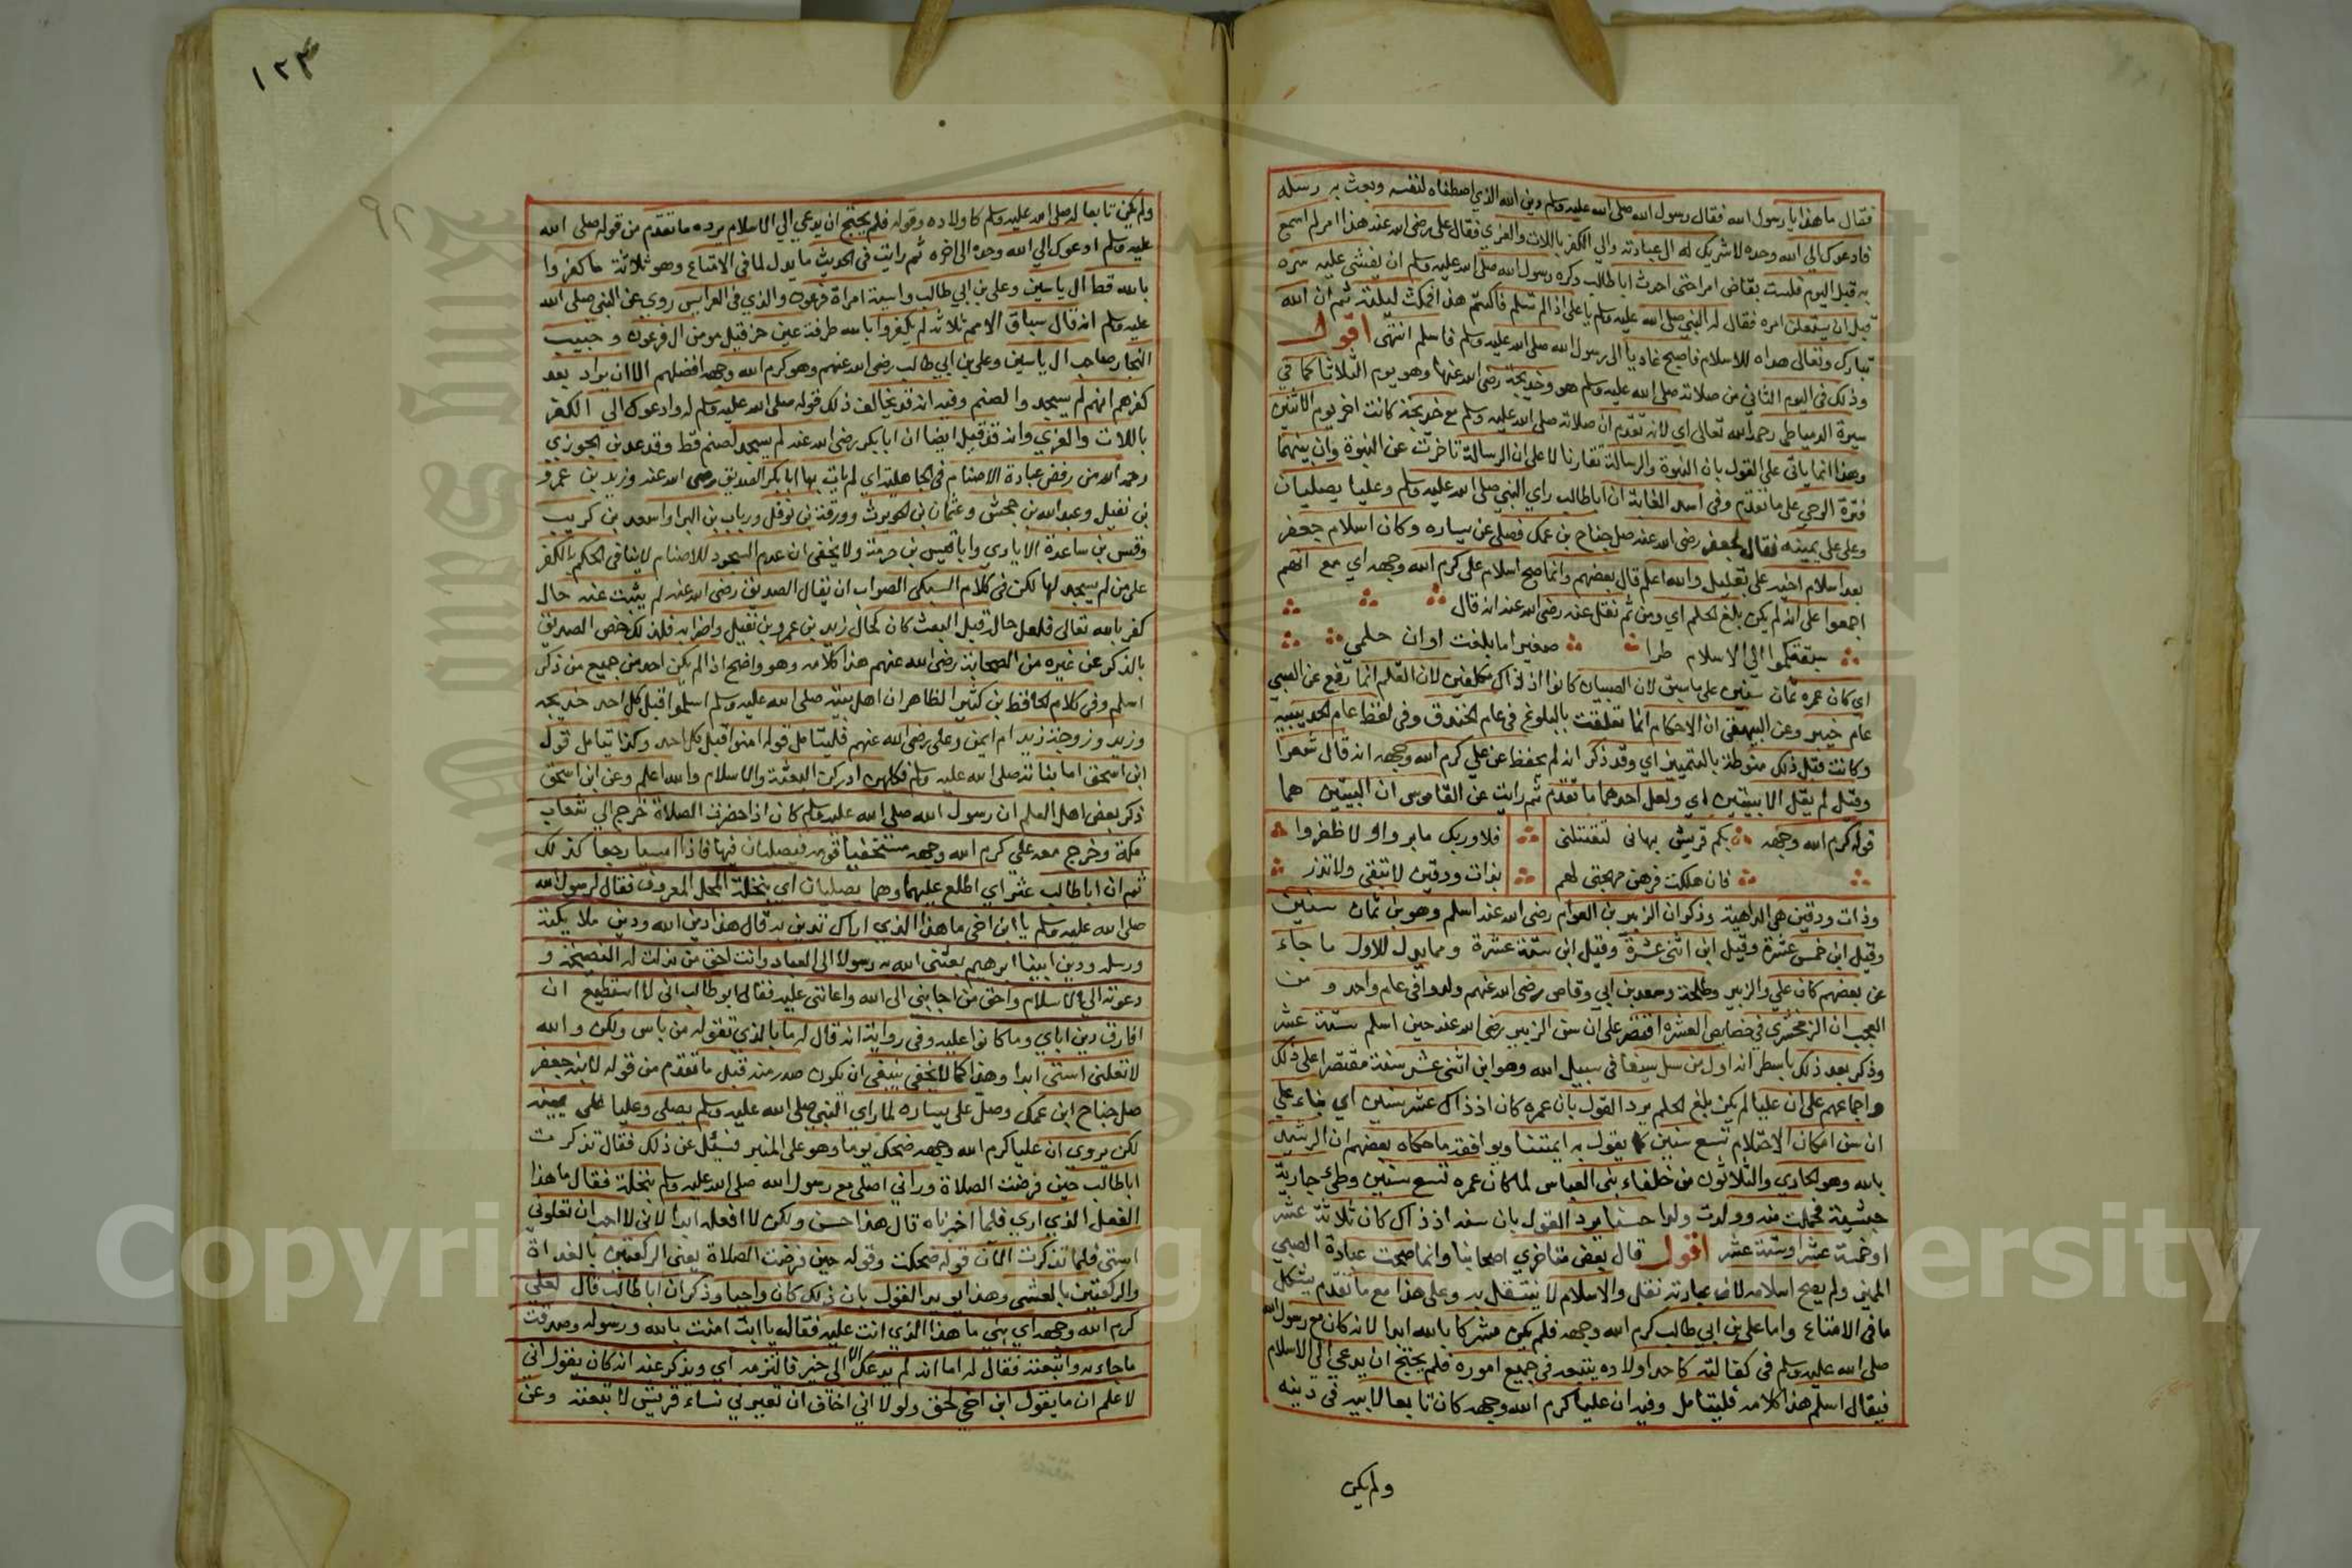 فقال ما هذا يا رسول الله فقال رسول الله صلى الله عليه وسلم دين الله الذي اصطفاه لنفسه وبعث به رسله
فادعوك الي الله وحده لا شريك له الي عبادته والي الكفر باللات والعزي فقال علي رضي الله عنه هذا امر لم اسمع
به قبل اليوم فلست بقاض امرا حتي احدث ابا طالب وكره رسول الله صلى الله عليه وسلم ان يفشي عليه سره
قبل ان يستعلن امره فقال له النبي صلى الله عليه وسلم يا علي اذا لم تسلم فاكتم هذا فمكث ليلته ثم ان الله
تبارك وتعالى هداه للاسلام فاصبح غاديا الى رسول الله صلى الله عليه وسلم فاسلم انتهى اقول
وذلك في اليوم الثاني من صلاته صلى الله عليه وسلم هو وخديجة رضي الله عنها وهو يوم الثلاثا كما في
سيرة الدمياطي رحمه الله تعالى اي لانه تقدم ان صلاته صلى الله عليه وسلم مع خديجة كانت اخر يوم الاثنين
وهذا انما ياتي على القول بان النبوة والرسالة تقارنا لا على ان الرسالة تاخرت عن النبوة وان بينهما
فترة الوحي على ما تقدم وفي اسد الغابة ان ابا طالب راي النبي صلى الله عليه وسلم وعليا يصليان
وعلي على يمينه فقال لجعفر رضي الله عنه صل جناح بن عمك فصلى عن يساره وكان اسلام جعفر
بعد اسلام اخيه علي بقليل والله اعلم قال بعضهم وانما صح اسلام علي كرم الله وجهه اي مع انهم
اجمعوا على انه لم يكن بلغ الحلم اي ومن ثم نقل عنه رضي الله عنه انه قال
سبقتكموا الي الاسلام طرا صغيرا ما بلغت اوان حلمي
اي كان عمره ثمان سنين على ما سبق لان الصبيان كانوا اذ ذاك مكلفين لان القلم انما رفع عن الصبي
عام خيبر وعن البيهقي ان الاحكام انما تعلقت بالبلوغ في عام الخندق وفي لفظ عام الحديبية
وكانت قبل ذلك منوطة بالتمييز اي وقد ذكر انه لم يحفظ عن علي كرم الله وجهه انه قال شعرا
وقيل لم يقل الا بيتين اي ولعل احدهما ما تقدم ثم رايت عن القاموس ان البيتين هما
قوله كرم الله وجهه تلكم قريش تمناني لتقتلني فلا وربك ما بروا ولا ظفروا
فان هلكت فرهن مهجتي لهم بذات ودقين لا تبقي ولا تذر
وذات ودقين هي الداهية وذكر ان الزبير بن العوام رضي الله عنه اسلم وهو بن ثمان سنين
وقيل ابن خمس عشرة وقيل ابن اثني عشرة وقيل ابن ستة عشرة ومما يدل للاول ما جاء
عن بعضهم كان علي والزبير وطلحة وسعد بن ابي وقاص رضي الله عنهم ولدوا في عام واحد ومن
العجب ان الزمخشري في خصايص العشره اقتصر على ان سن الزبير رضي الله عنه حين اسلم ستة عشر
وذكر بعد ذلك باسطر انه اول من سل سيفا في سبيل الله وهو ابن اثني عشر سنة مقتصرا على ذلك
واجماعهم على ان عليا لم يكن بلغ الحلم يرد القول بان عمره كان اذ ذاك عشر سنين اي بناء على
ان سن امكان الاحتلام تسع سنين كما يقول به ايمتنا ويوافقه ما حكاه بعضهم ان الرشيد
بالله وهو الحادي والثلاثون من خلفاء بني العباس لما كان عمره تسع سنين وطئ جارية
حبشية فحملت منه وولدت ولدا حسنا يرد القول بان سنه اذ ذاك كان ثلاثة عشر
او خمسة عشر او ستة عشر اقول قال بعض متاخري اصحابنا وانما صحت عبادة الصبي
المميز ولم يصح اسلامه لان عبادته نفل والاسلام لا يتنفل به وعلى هذا مع ما تقدم يشكل
ما في الامتاع واما علي بن ابي طالب كرم الله وجهه فلم يكن مشركا بالله ابدا لانه كان مع رسول الله
صلى الله عليه وسلم في كفالته كاحد اولاده يتبعه في جميع اموره فلم يحتج ان يدعي الي الاسلام
فيقال اسلم هذا كلامه فليتامل وفيه ان عليا كرم الله وجهه كان تابعا لابيه في دينه
ولم يكن
١٢٣
ولم يكن تابعا له صلى الله عليه وسلم كاولاده وقوله فلم يحتج ان يدعي الي الاسلام يرده ما تقدم من قوله صلى الله
عليه وسلم ادعوك الي الله وحده الى اخره ثم رايت في الحديث ما يدل لما في الامتاع وهو ثلاثة ما كفروا
بالله قط ال ياسين وعلي بن ابي طالب واسية امراة فرعون والذي في العرايس روي عن النبي صلى الله
عليه وسلم انه قال سباق الامم ثلاثة لم يكفروا بالله طرفة عين حزقيل مومن ال فرعون وحبيب
النجار صاحب ال ياسين وعلي بن ابي طالب رضي الله عنهم وهو كرم الله وجهه افضلهم الا ان يراد بعد
كفرهم انهم لم يسجدوا لصنم وفيه انه قد يخالف ذلك قوله صلى الله عليه وسلم له وادعوك الي الكفر
باللات والعزي وانه قد قيل ايضا ان ابا بكر رضي الله عنه لم يسجد لصنم قط وقد عد بن الجوزي
رحمه الله من رفض عبادة الاصنام في الجاهلية اي لم يات بها ابا بكر الصديق رضي الله عنه وزيد بن عمرو
بن نفيل وعبد الله بن جحش وعثمان بن الحويرث وورقة بن نوفل ورباب بن البراو اسعد بن كريب
وقس بن ساعدة الايادي وابا قيس بن صرمة ولا يخفى ان عدم السجود للاصنام لا ينافي الحكم بالكفر
على من لم يسجد لها لكن في كلام السبكي الصواب ان يقال الصديق رضي الله عنه لم يثبت عنه حال
كفر بالله تعالى فلعل حاله قبل البعث كان كحال زيد بن عمرو بن نفيل واضرابه فلذلك خص الصديق
بالذكر عن غيره من الصحابة رضي الله عنهم هذا كلامه وهو واضح اذا لم يكن احد من جميع من ذكر
اسلم وفي كلام الحافظ بن كثير الظاهر ان اهل بيته صلى الله عليه وسلم اسلموا قبل كل احد خديجه
وزيد وزوجة زيد ام ايمن وعلي رضي الله عنهم فليتامل قوله امنوا قبل كل احد وكذا يتامل قول
ابن اسحق اما بناته صلى الله عليه وسلم فكلهن ادركن البعثة والاسلام والله اعلم وعن ابن اسحق
ذكر بعض اهل العلم ان رسول الله صلى الله عليه وسلم كان اذا حضرت الصلاة خرج الي شعاب
مكة وخرج معه علي كرم الله وجهه مستخفيا من قومه فيصليان فيها فاذا امسيا رجعا كذلك
ثم ان ابا طالب عثر اي اطلع عليهما وهما يصليان اي بنخلة المحل المعروف فقال لرسول الله
صلى الله عليه وسلم يا ابن اخي ما هذا الذي اراك تدين به قال هذا دين الله ودين ملايكته
ورسله ودين ابينا ابرهيم بعثني الله به رسولا الى العباد وانت احق من بذلت له النصيحة و
دعوته الي الاسلام واحق من اجابني الى الله واعانني عليه فقال ابو طالب اني لا استطيع ان
افارق دين اباي وما كانوا عليه وفي رواية انه قال له ما بالذي تقوله من باس ولكن والله
لا تعلني استي ابدا وهذا كما لا يخفي ينبغي ان يكون صدر منه قبل ما تقدم من قوله لابنه جعفر
صل جناح ابن عمك وصل على يساره لما راي النبي صلى الله عليه وسلم يصلي وعليا على يمينه
لكن يروي ان عليا كرم الله وجهه ضحك يوما وهو على المنبر فسئل عن ذلك فقال تذكرت
ابا طالب حين فرضت الصلاة وراني اصلي مع رسول الله صلى الله عليه وسلم بنخلة فقال ما هذا
الفعل الذي اري فلما اخبرناه قال هذا حسن ولكن لا افعله ابدا لاني لا احب ان تعلوني
استي فلما تذكرت الان قوله ضحكت وقوله حين فرضت الصلاة يعني الركعتين بالغداة
والركعتين بالعشي وهذا يويد القول بان ذلك كان واجبا وذكر ان ابا طالب قال لعلي
كرم الله وجهه اي بني ما هذا الذي انت عليه فقال يا ابت امنت بالله ورسوله وصدقت
ما جاء به واتبعته فقال له اما انه لم يدعك الا الى خير فالتزمه اي ويذكر عنه انه كان يقول اني
لاعلم ان ما يقول ابن اخي لحق ولولا اني اخاف ان تعيرني نساء قريش لاتبعته وعن
Copyright © King Saud University